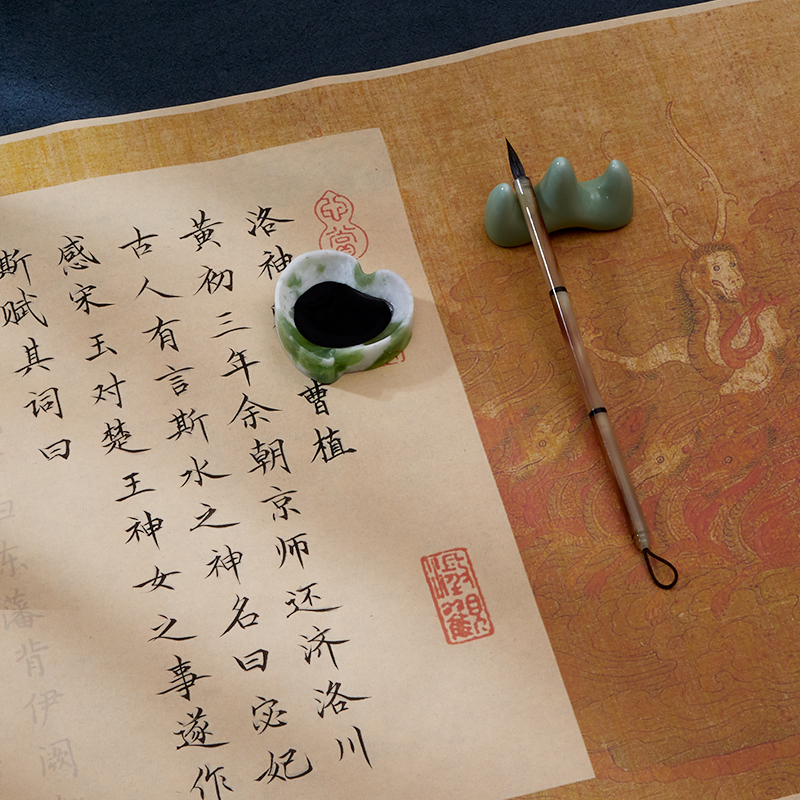 洛神 曹植
黄初三年余朝京师还济洛川
古人有言斯水之神名曰宓妃
感宋玉对楚王神女之事遂作
斯赋其词曰
东藩背伊阙